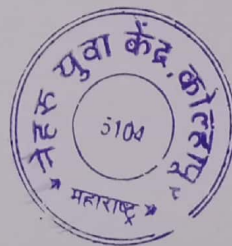 नेहरु युवा केंद्र, कोल्हापूर
5104
* महाराष्ट्र *